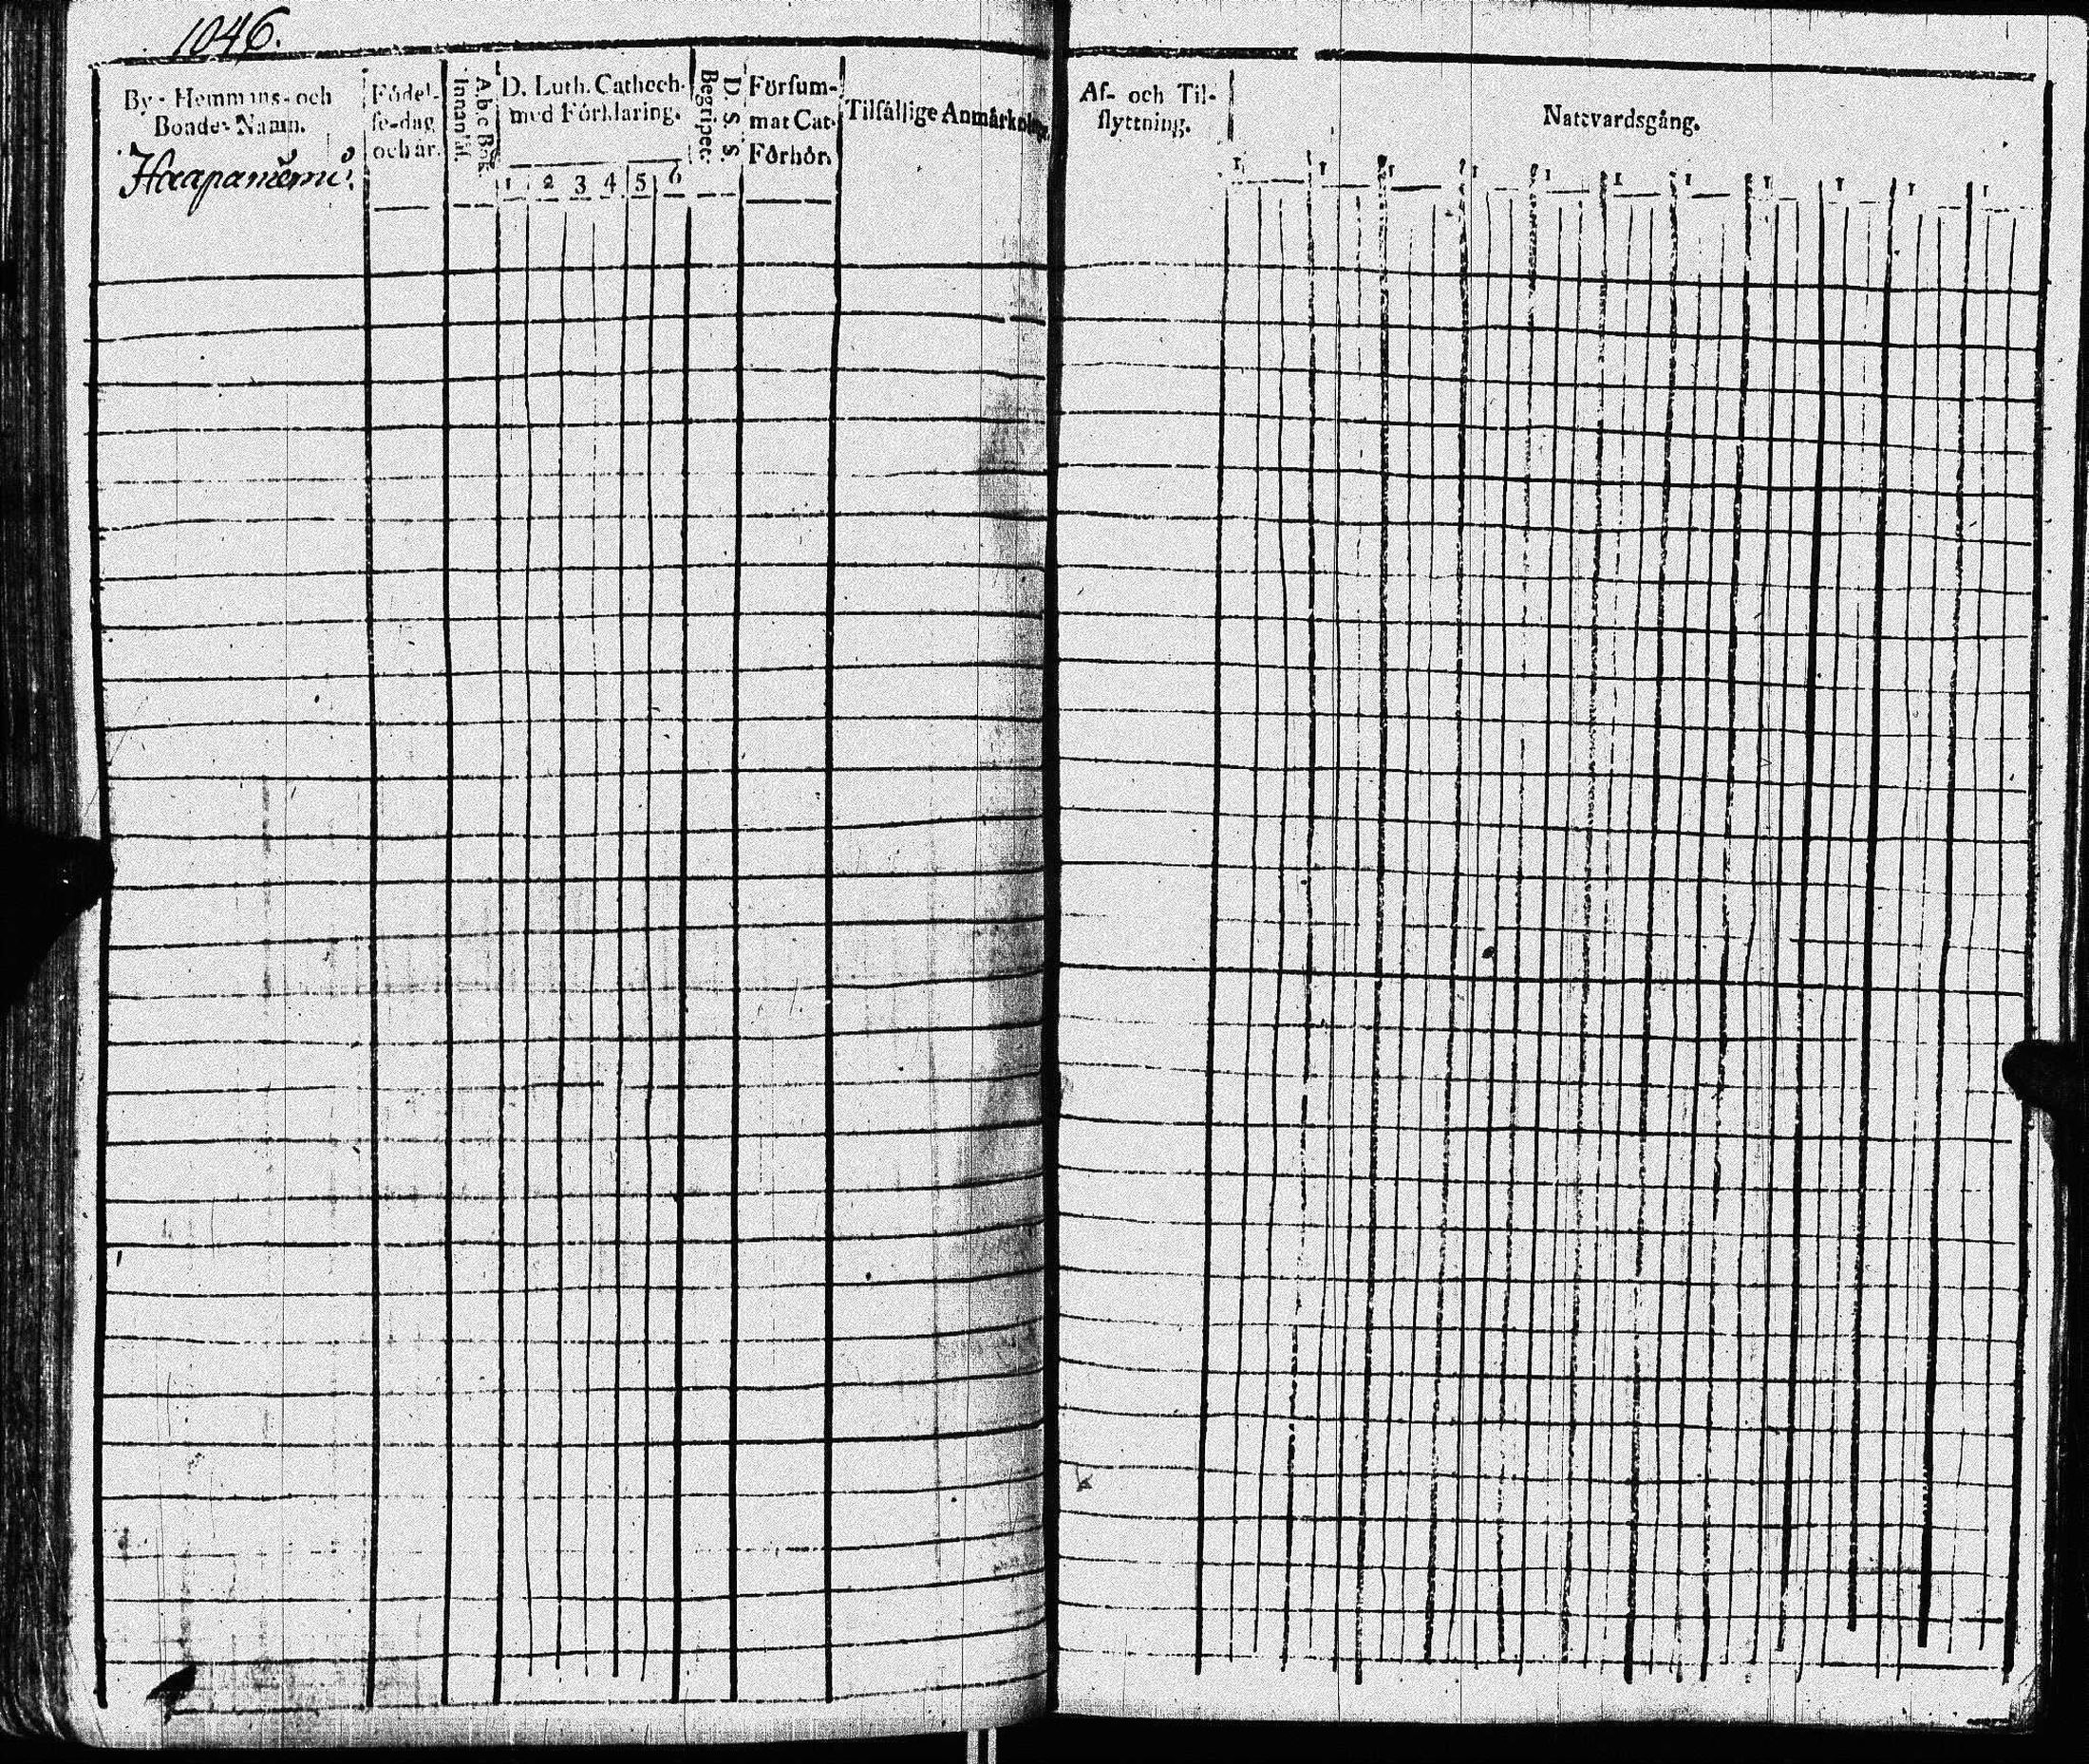 1046.
By- Hemmans- och
Bondes Namn.
Haapaniemi
Födel-
se-dag
och år.
A.b.c Bok.
Innan läs.
D. Luth. Cathech.
med Förklaring.
1 2 3 4 5 6
D. S. S.
Begriper.
Förſum-
mat Cat.
Förhör.
Tilfällige Anmärkningar
Af- och Til-
flyttning.
Nattvardsgång.
1 1 1 1 1 1 1 1 1 1 1